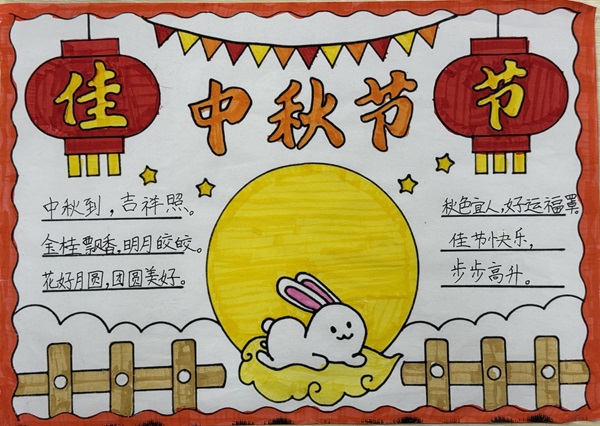 佳
中秋节
节
中秋到，吉祥照。
金桂飘香，明月皎皎。
花好月圆，团圆美好。
秋色宜人，好运福罩。
佳节快乐，
步步高升。